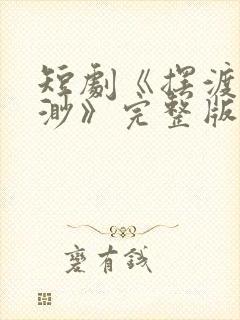 短劇《擇渡
渺》完整版
磨有錢